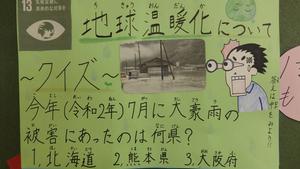 13 気候変動に
具体的な対策を
地球温暖化について
ちきゅうおんだんか
～クイズ～
今年(令和2年)7月に大豪雨の
被害にあったのは何県?
1.北海道 2.熊本県 3.大阪府
答えは中をみよう!!